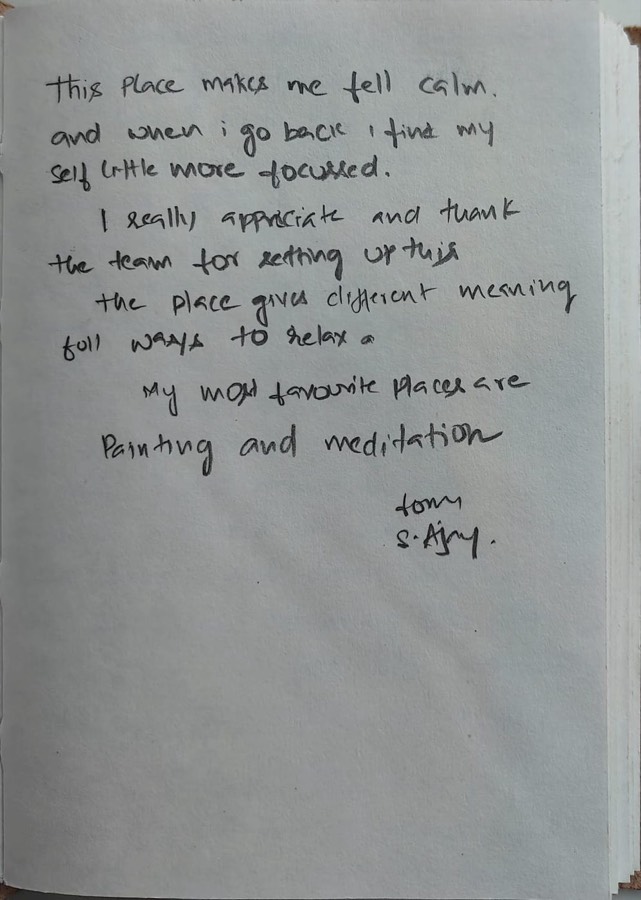 This Place makes me fell calm.
and when i go back i find my
self little more focussed.
I really appriciate and thank
the team for setting up this
the place gives different meaning
full ways to relax.
My most favourite places are
Painting and meditation
S. Ajay.